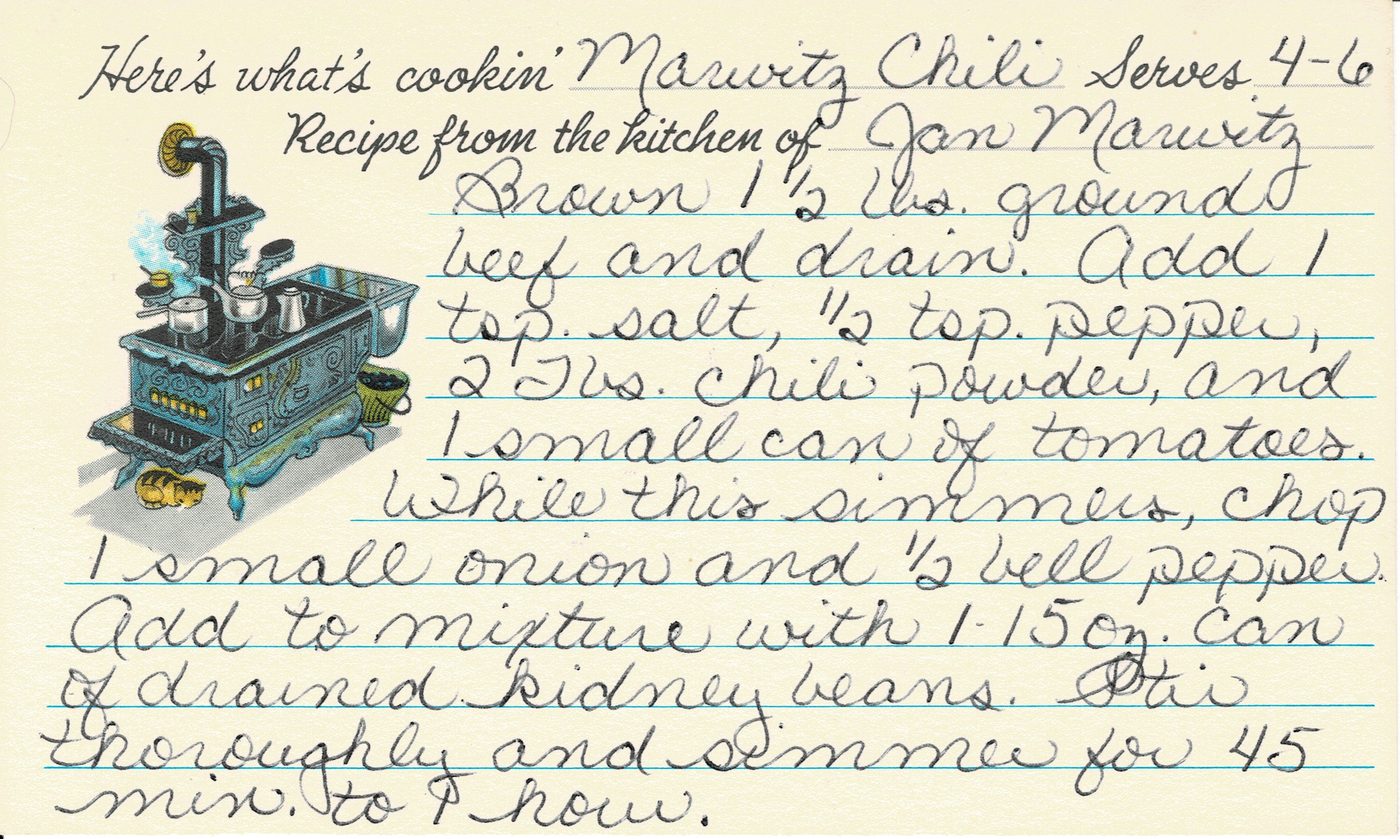 Here's what's cookin' Marwitz Chili Serves 4-6
Recipe from the kitchen of Jan Marwitz
Brown 1 1/2 lbs. ground
beef and drain. Add 1
tsp. salt, 1/2 tsp. pepper,
2 Tbs. chili powder, and
1 small can of tomatoes.
While this simmers, chop
1 small onion and 1/2 bell pepper.
Add to mixture with 1-15 oz. can
of drained kidney beans. Stir
thoroughly and simmer for 45
min. to 1 hour.